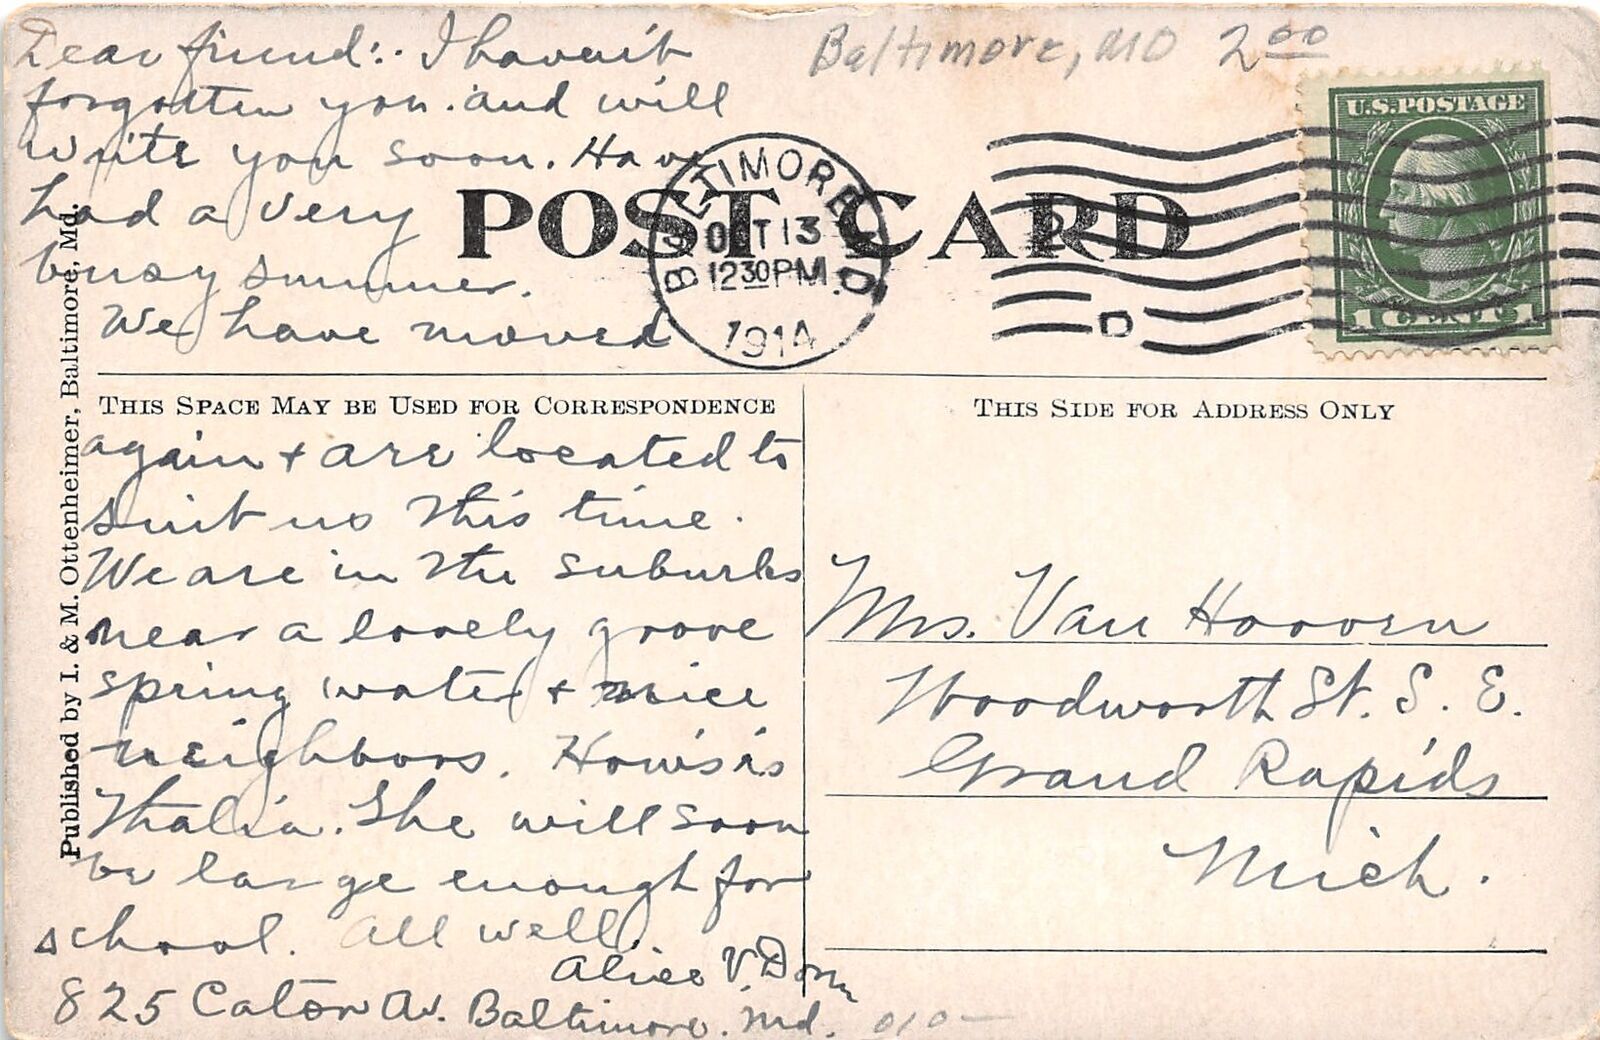 Dear friend:. I haven't
forgotten you. and will
write you soon. Have
had a very
busy summer.
We have moved
again + are located to
suit us this time.
We are in the suburbs
near a lovely grove
spring water + nice
neighbors. How's is
Thalia. She will soon
be large enough for
school. All well.
Alice V. Dorn
825 Caton Av. Baltimore. Md.
Baltimore, MD 2 00
POST CARD
BALTIMORE MD.
OCT 13
12 30 PM
1914
2
D
U.S. POSTAGE
1 CENT 1
THIS SPACE MAY BE USED FOR CORRESPONDENCE
THIS SIDE FOR ADDRESS ONLY
Mrs. Van Hooven
Woodworth St. S. E.
Grand Rapids
Mich.
Published by I. & M. Ottenheimer, Baltimore, Md.